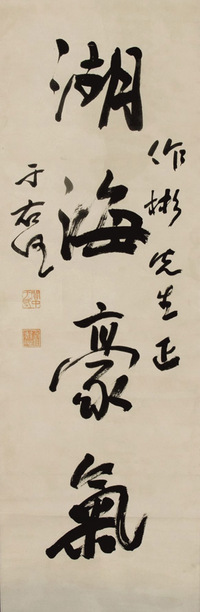 作彬先生正
湖海豪氣
于右任